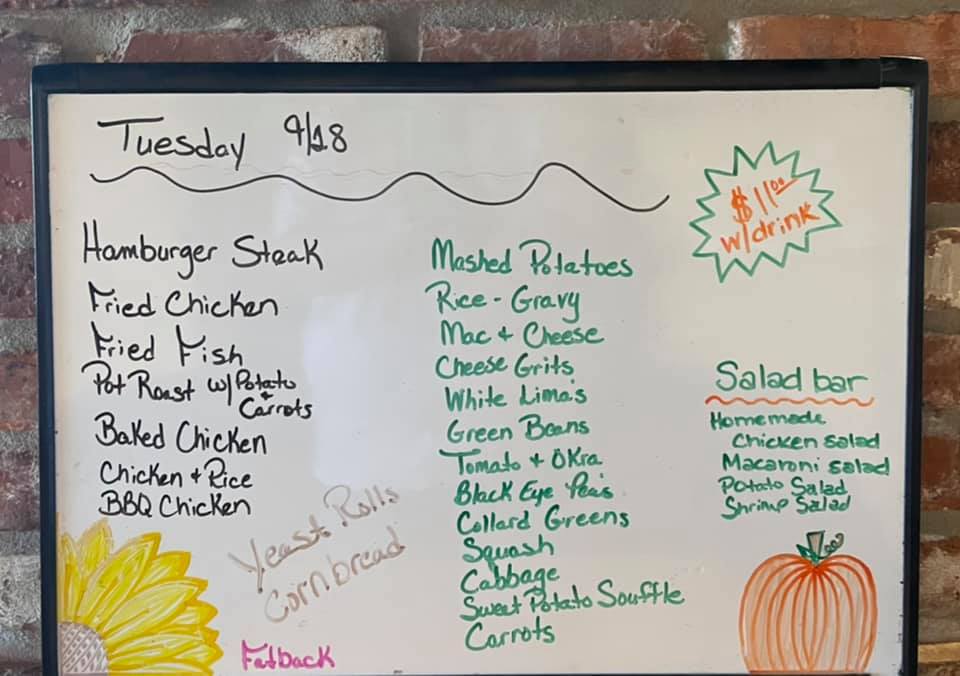 Tuesday 9/18
$11.00
w/drink
Hamburger Steak
Fried Chicken
Fried Fish
Pot Roast w/ Potato
+
Carrots
Baked Chicken
Chicken + Rice
BBQ Chicken
Yeast Rolls
Cornbread
Fatback
Mashed Potatoes
Rice - Gravy
Mac + Cheese
Cheese Grits
White Lima's
Green Beans
Tomato + OKra
Black Eye Pea's
Collard Greens
Squash
Cabbage
Sweet Potato Souffle
Carrots
Salad bar
Homemade
Chicken salad
Macaroni salad
Potato Salad
Shrimp Salad